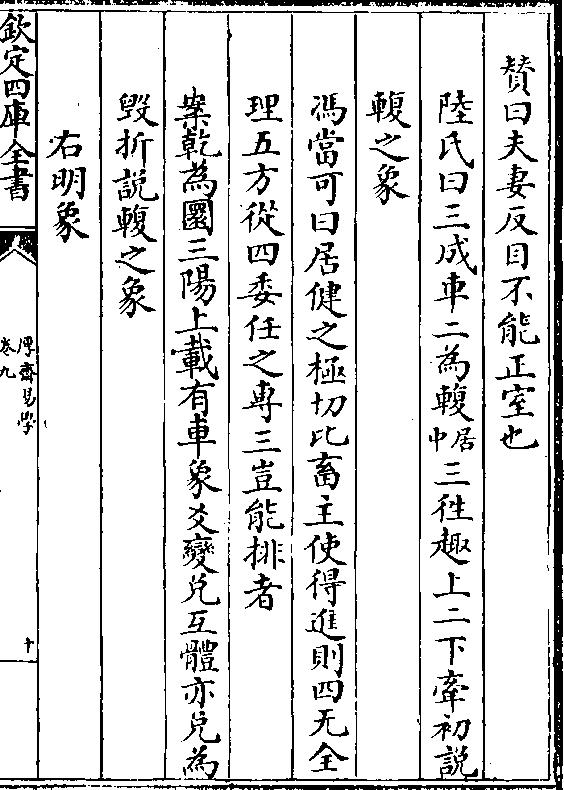 賛曰夫妻反目不能正室也
陸氏曰三成車二為輹居中三徃趣上二下牽初説
輹之象
馮當可曰居健之極切比畜主使得進則四无全
理五方從四委任之専三豈能排者
案乾為圜三陽上載有車象爻變兊互體亦兊為
毁折説輹之象
右明象
欽定四庫全書
厚齋易學
卷九
十